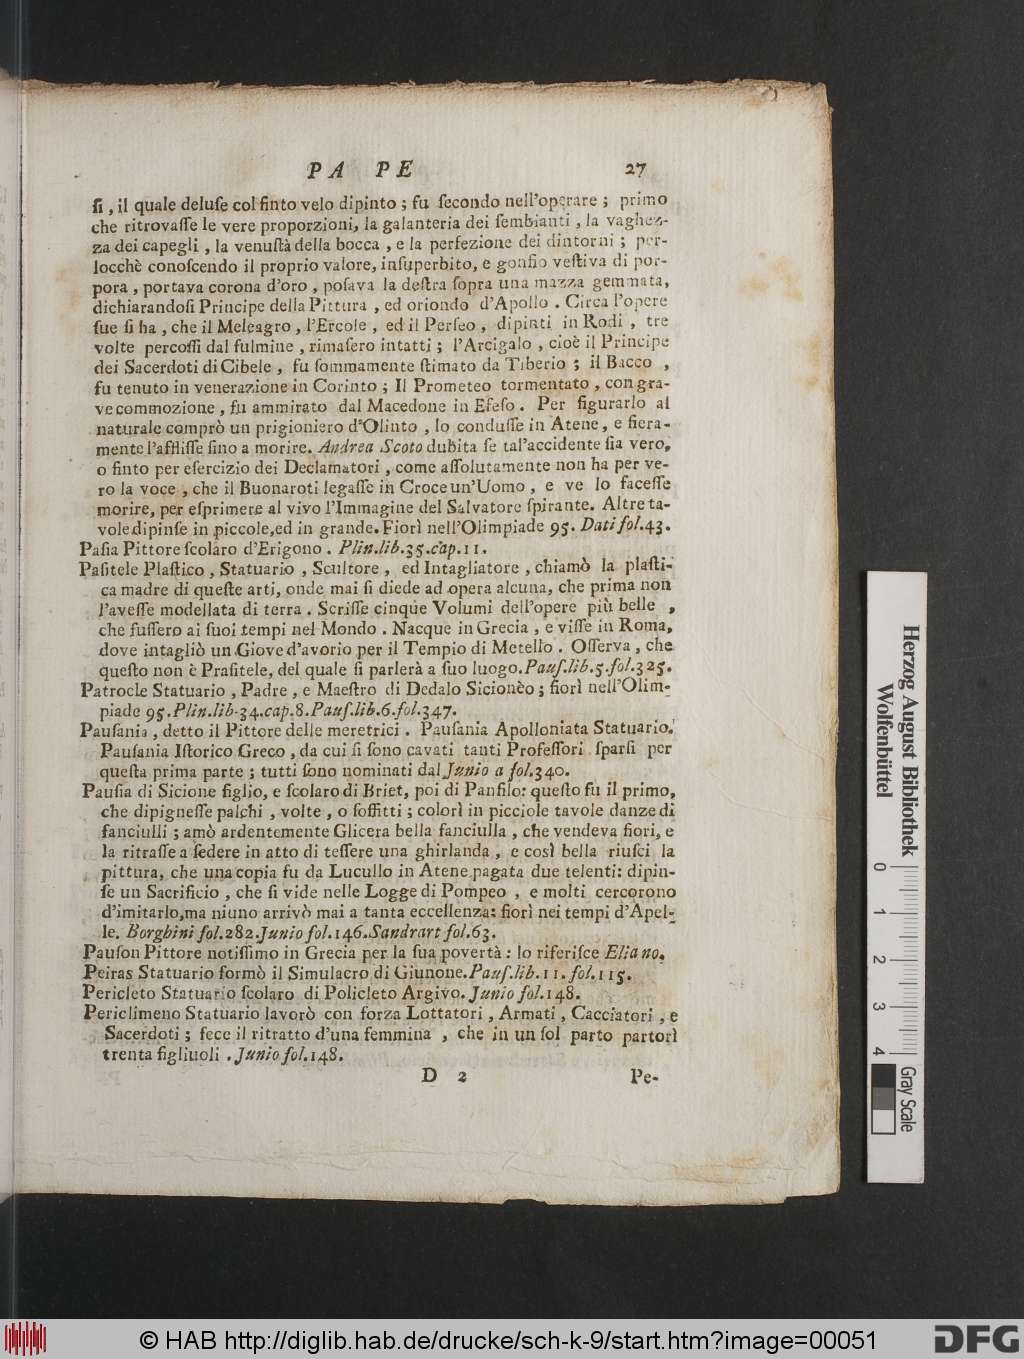 PA PE 27
ſi, il quale deluſe col finto velo dipinto; fu ſecondo nell'operare; primo
che ritrovaſſe le vere proporzioni, la galanteria dei ſembianti, la vaghez-
za dei capegli, la venuſtà della bocca, e la perfezione dei dintorni; per-
locchè conoſcendo il proprio valore, inſuperbito, e gonfio veſtiva di por-
pora, portava corona d'oro, poſava la deſtra ſopra una mazza gemmata,
dichiarandoſi Principe della Pittura, ed oriondo d'Apollo. Circa l'opere
ſue ſi ha, che il Meleagro, l'Ercole, ed il Perſeo, dipinti in Rodi, tre
volte percoſſi dal fulmine, rimaſero intatti; l'Arcigalo, cioè il Principe
dei Sacerdoti di Cibele, fu ſommamente ſtimato da Tiberio; il Bacco,
fu tenuto in venerazione in Corinto; Il Prometeo tormentato, con gra-
ve commozione, fu ammirato dal Macedone in Efeſo. Per figurarlo al
naturale comprò un prigioniero d'Olinto, lo conduſſe in Atene, e fiera-
mente l'affliſſe ſino a morire. Andrea Scoto dubita ſe tal'accidente ſia vero,
o finto per eſercizio dei Declamatori, come aſſolutamente non ha per ve-
ro la voce, che il Buonaroti legaſſe in Croce un'Uomo, e ve lo faceſſe
morire, per eſprimere al vivo l'Immagine del Salvatore ſpirante. Altre ta-
vole dipinſe in piccole, ed in grande. Fiorì nell'Olimpiade 95. Dati fol. 43.
Paſia Pittore ſcolaro d'Erigono. Plin. lib. 35. cap. 11.
Paſitele Plaſtico, Statuario, Scultore, ed Intagliatore, chiamò la plaſti-
ca madre di queſte arti, onde mai ſi diede ad opera alcuna, che prima non
l'aveſſe modellata di terra. Scriſſe cinque Volumi dell'opere più belle,
che fuſſero ai ſuoi tempi nel Mondo. Nacque in Grecia, e viſſe in Roma,
dove intagliò un Giove d'avorio per il Tempio di Metello. Oſſerva, che
queſto non è Praſitele, del quale ſi parlerà a ſuo luogo. Pauſ. lib. 5. fol. 325.
Patrocle Statuario, Padre, e Maeſtro di Dedalo Sicionèo; fiorì nell'Olim-
piade 95. Plin. lib. 34. cap. 8. Pauſ. lib. 6. fol. 347.
Pauſania, detto il Pittore delle meretrici. Pauſania Apolloniata Statuario.
Pauſania Iſtorico Greco, da cui ſi ſono cavati tanti Profeſſori ſparſi per
queſta prima parte; tutti ſono nominati dal Junio a fol. 340.
Pauſia di Sicione figlio, e ſcolaro di Briet, poi di Panfilo: queſto fu il primo,
che dipigneſſe palchi, volte, o ſoffitti; colorì in picciole tavole danze di
fanciulli; amò ardentemente Glicera bella fanciulla, che vendeva fiori, e
la ritraſſe a ſedere in atto di teſſere una ghirlanda, e così bella riuſcì la
pittura, che una copia fu da Lucullo in Atene pagata due telenti: dipin-
ſe un Sacrificio, che ſi vide nelle Logge di Pompeo, e molti cercorono
d'imitarlo, ma niuno arrivò mai a tanta eccellenza: fiorì nei tempi d'Apel-
le. Borghini fol. 282. Junio fol. 146. Sandrart fol. 63.
Pauſon Pittore notiſſimo in Grecia per la ſua povertà: lo riferiſce Eliano.
Peiras Statuario formò il Simulacro di Giunone. Pauſ. lib. 11. fol. 115.
Pericleto Statuario ſcolaro di Policleto Argivo. Junio fol. 148.
Periclimeno Statuario lavorò con forza Lottatori, Armati, Cacciatori, e
Sacerdoti; fece il ritratto d'una femmina, che in un ſol parto partorì
trenta figliuoli. Junio fol. 148.
D 2 Pe-
Herzog August Bibliothek
Wolfenbüttel
0 1 2 3 4
Gray Scale
© HAB http://diglib.hab.de/drucke/sch-k-9/start.htm?image=00051
DFG